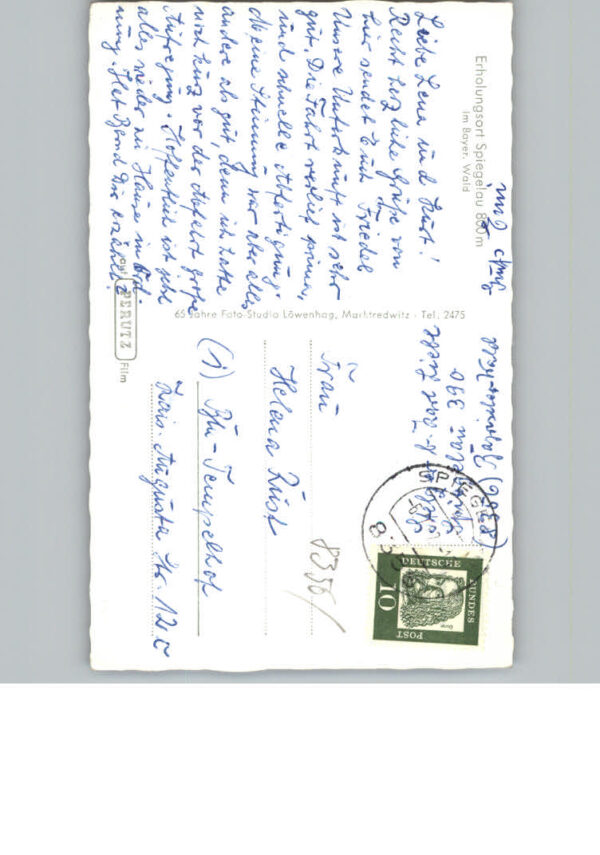 Erholungsort Spiegelau 800 m
im Bayer. Wald
Liebe Lena und Kurt!
Recht herzliche Grüße von
hier sendet Euch Friedel
Unsere Unterkunft ist sehr
gut. Die Fahrt verlief prima,
und schnelle Abfertigung.
Meine Stimmung war aber alles
andere als gut, denn ich hatte
noch kurz vor der Abfahrt große
Aufregung. Hoffentlich ist jetzt
alles wieder zu Hause in Ord-
nung. Hat Bernd Dir erzählt?
und
65 Jahre Foto-Studio Löwenhag, Marktredwitz · Tel. 2475
auf PERUTZ Film
Frau
Helena Rüst
(1) Bln-Tempelhof
Kais. Augusta Str. 12 c
8350/
(8356)
390
SPIEGEL
DEUTSCHE
BUNDES
POST
10
Dürer